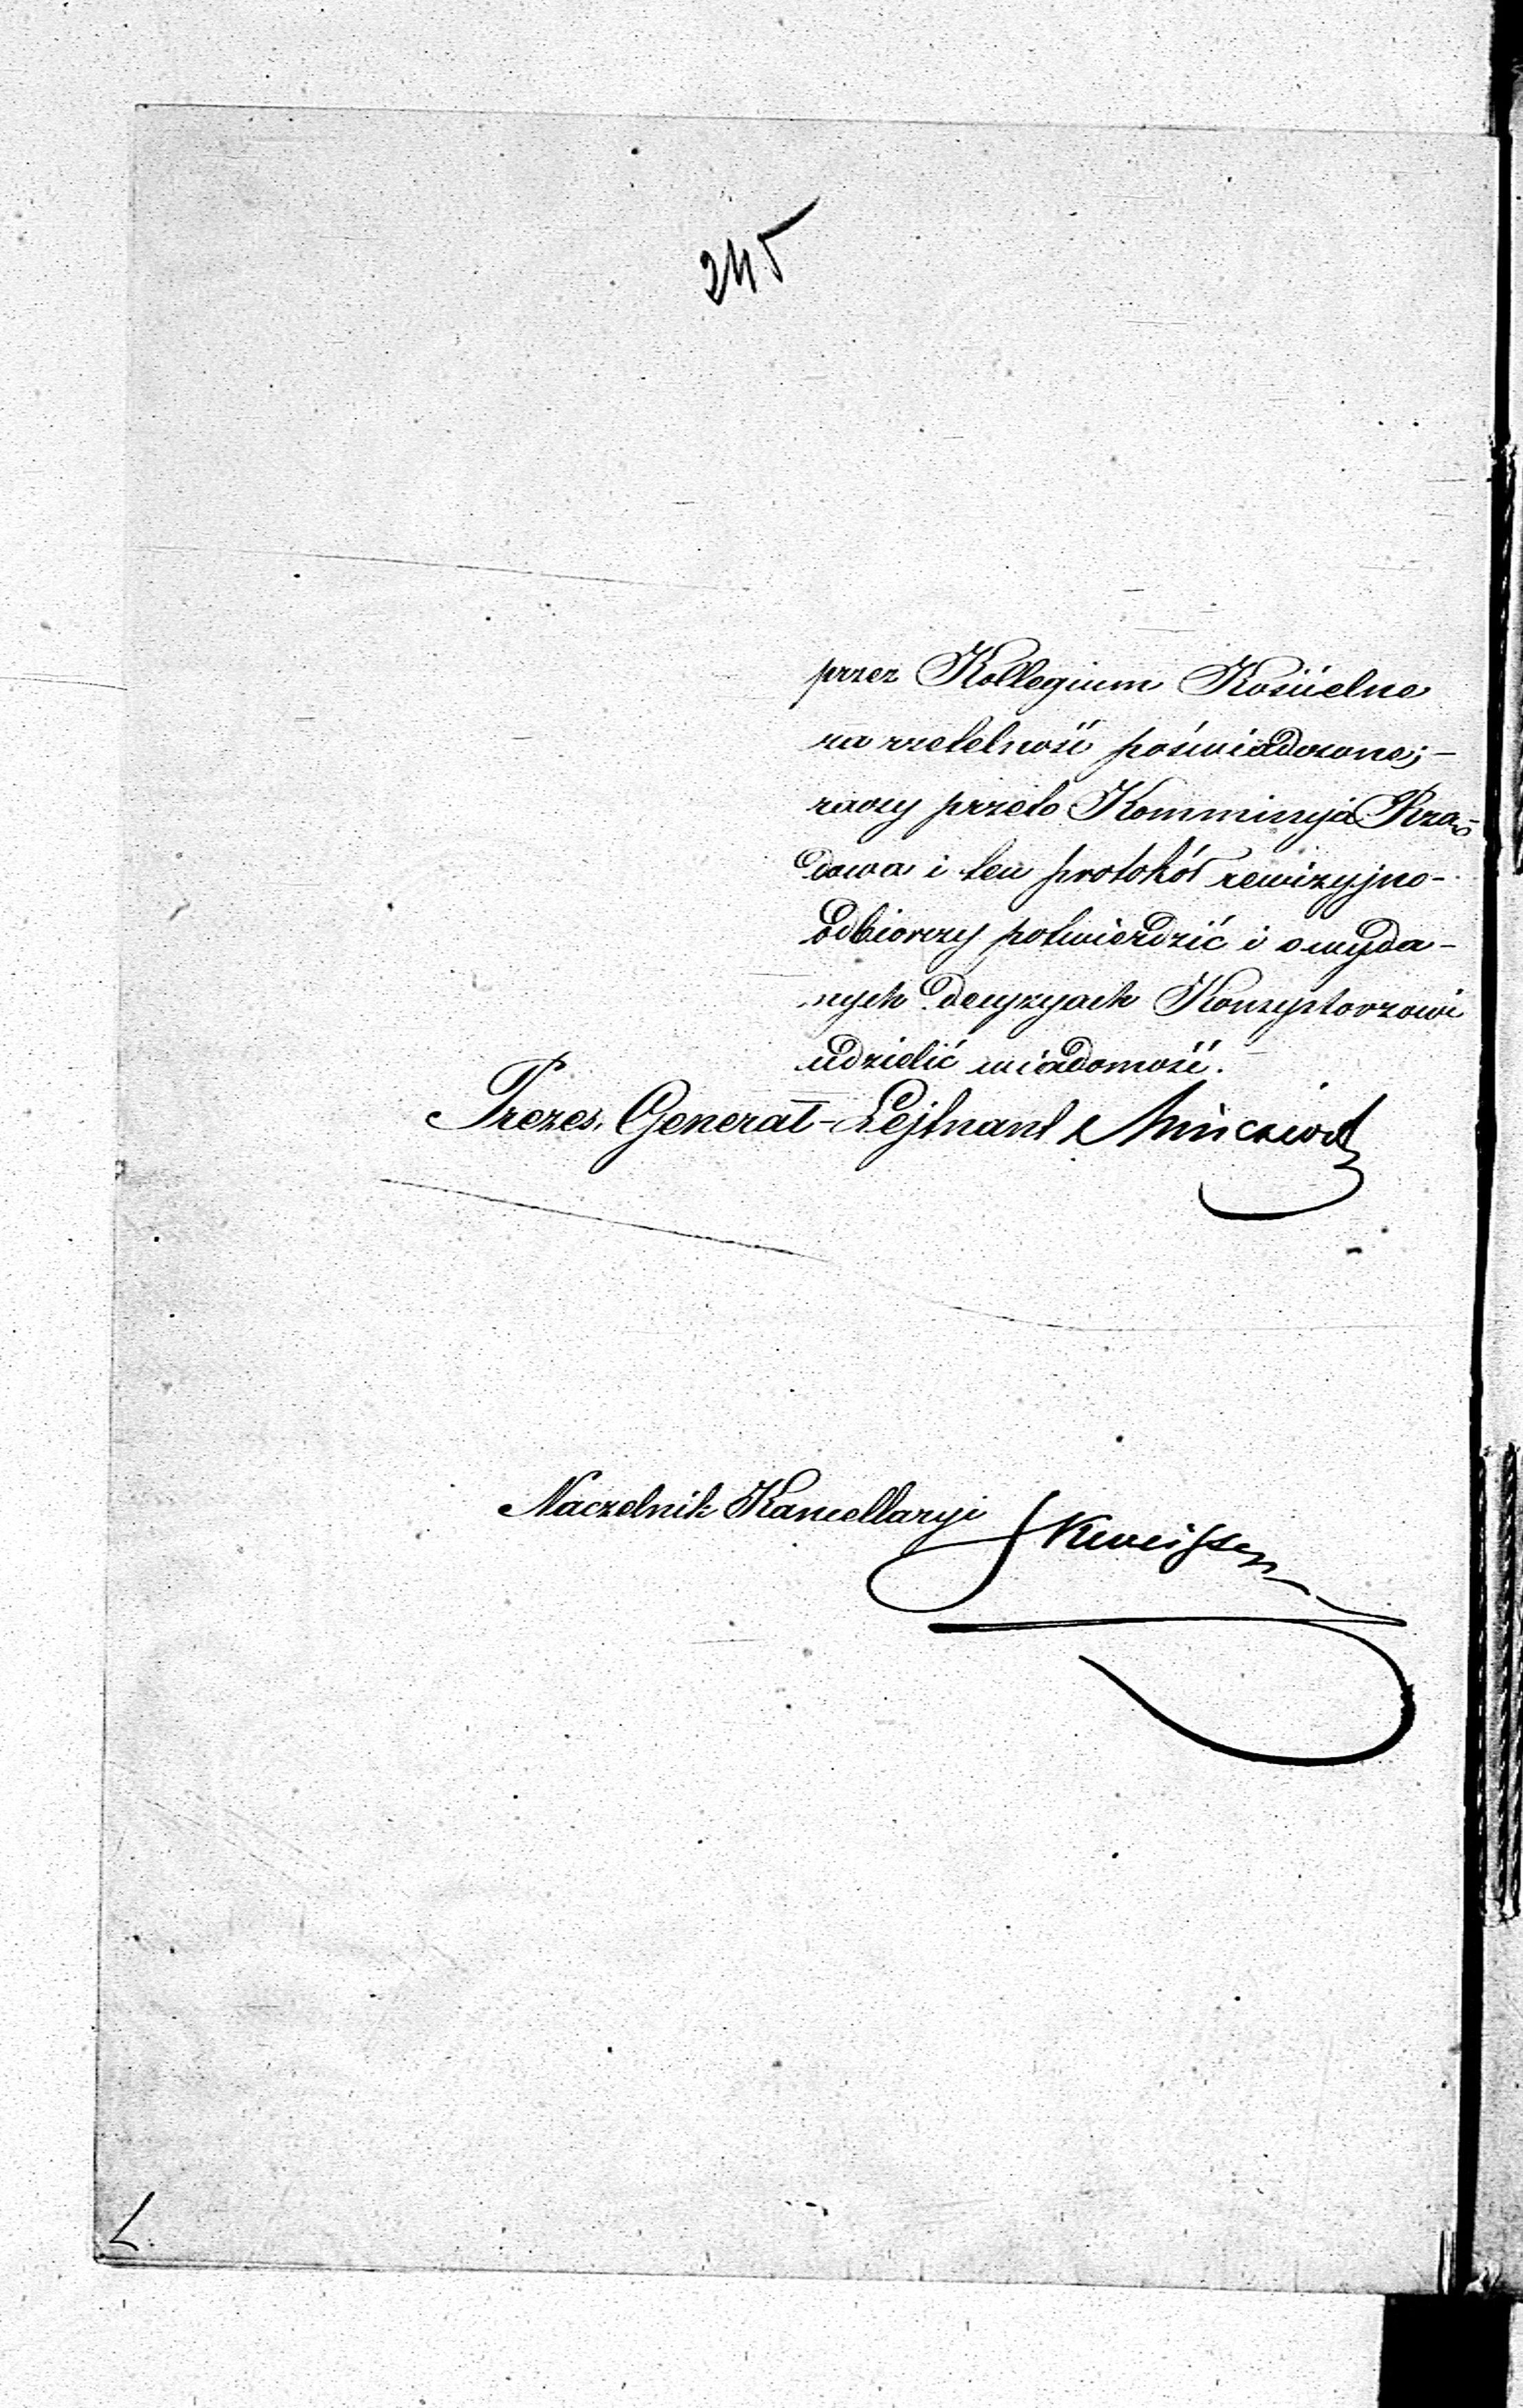 245
przez Kollegium Kościelne
za rzetelność poświadczone; –
raczy przeto Kommissyja Rzą-
dowa i ten protokół rewizyjno-
odbiorczy potwierdzić i o wyda-
nych decyzyach Konsystorzowi
udzielić wiadomość.
Prezes, Generał-Lejtnant
Naczelnik Kancellaryi
L.